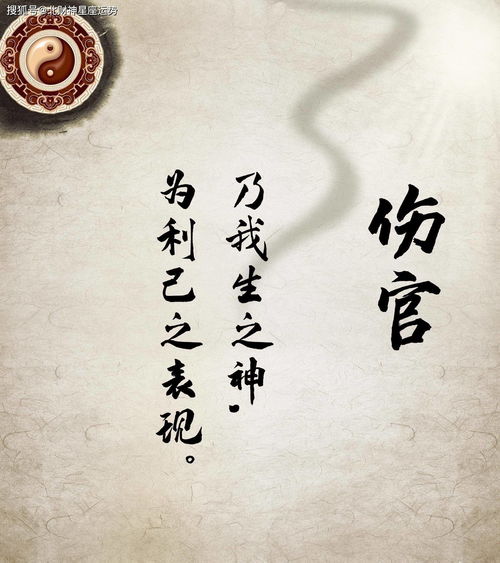 搜狐号@北财神星座运势
伤官
乃我生之神.
为利己之表现。